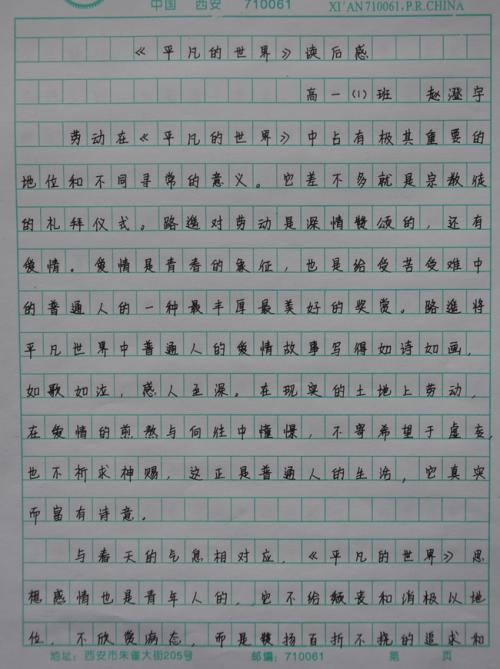 中国 西安 710061
XI'AN 710061, P.R.CHINA
《平凡的世界》读后感
高一(1)班 赵滢宇
劳动在《平凡的世界》中占有极其重要的
地位和不同寻常的意义。它差不多就是宗教徒
的礼拜仪式。路遥对劳动是深情赞颂的，还有
爱情。爱情是青春的象征，也是给受苦受难中
的普通人的一种最丰厚最美好的奖赏。路遥将
平凡世界中普通人的爱情故事写得如诗如画，
如歌如泣，感人至深。在现实的土地上劳动，
在爱情的煎熬与向往中憧憬，不寄希望于虚妄，
也不祈求神赐，这正是普通人的生活，它真实
而富有诗意。
与春天的气息相对应，《平凡的世界》思
想感情也是青年人的，它不给颓丧和消极以地
位，不欣赏病态，而是赞扬百折不挠的追求和
地址：西安市朱雀大街205号 邮编：710061 第 页